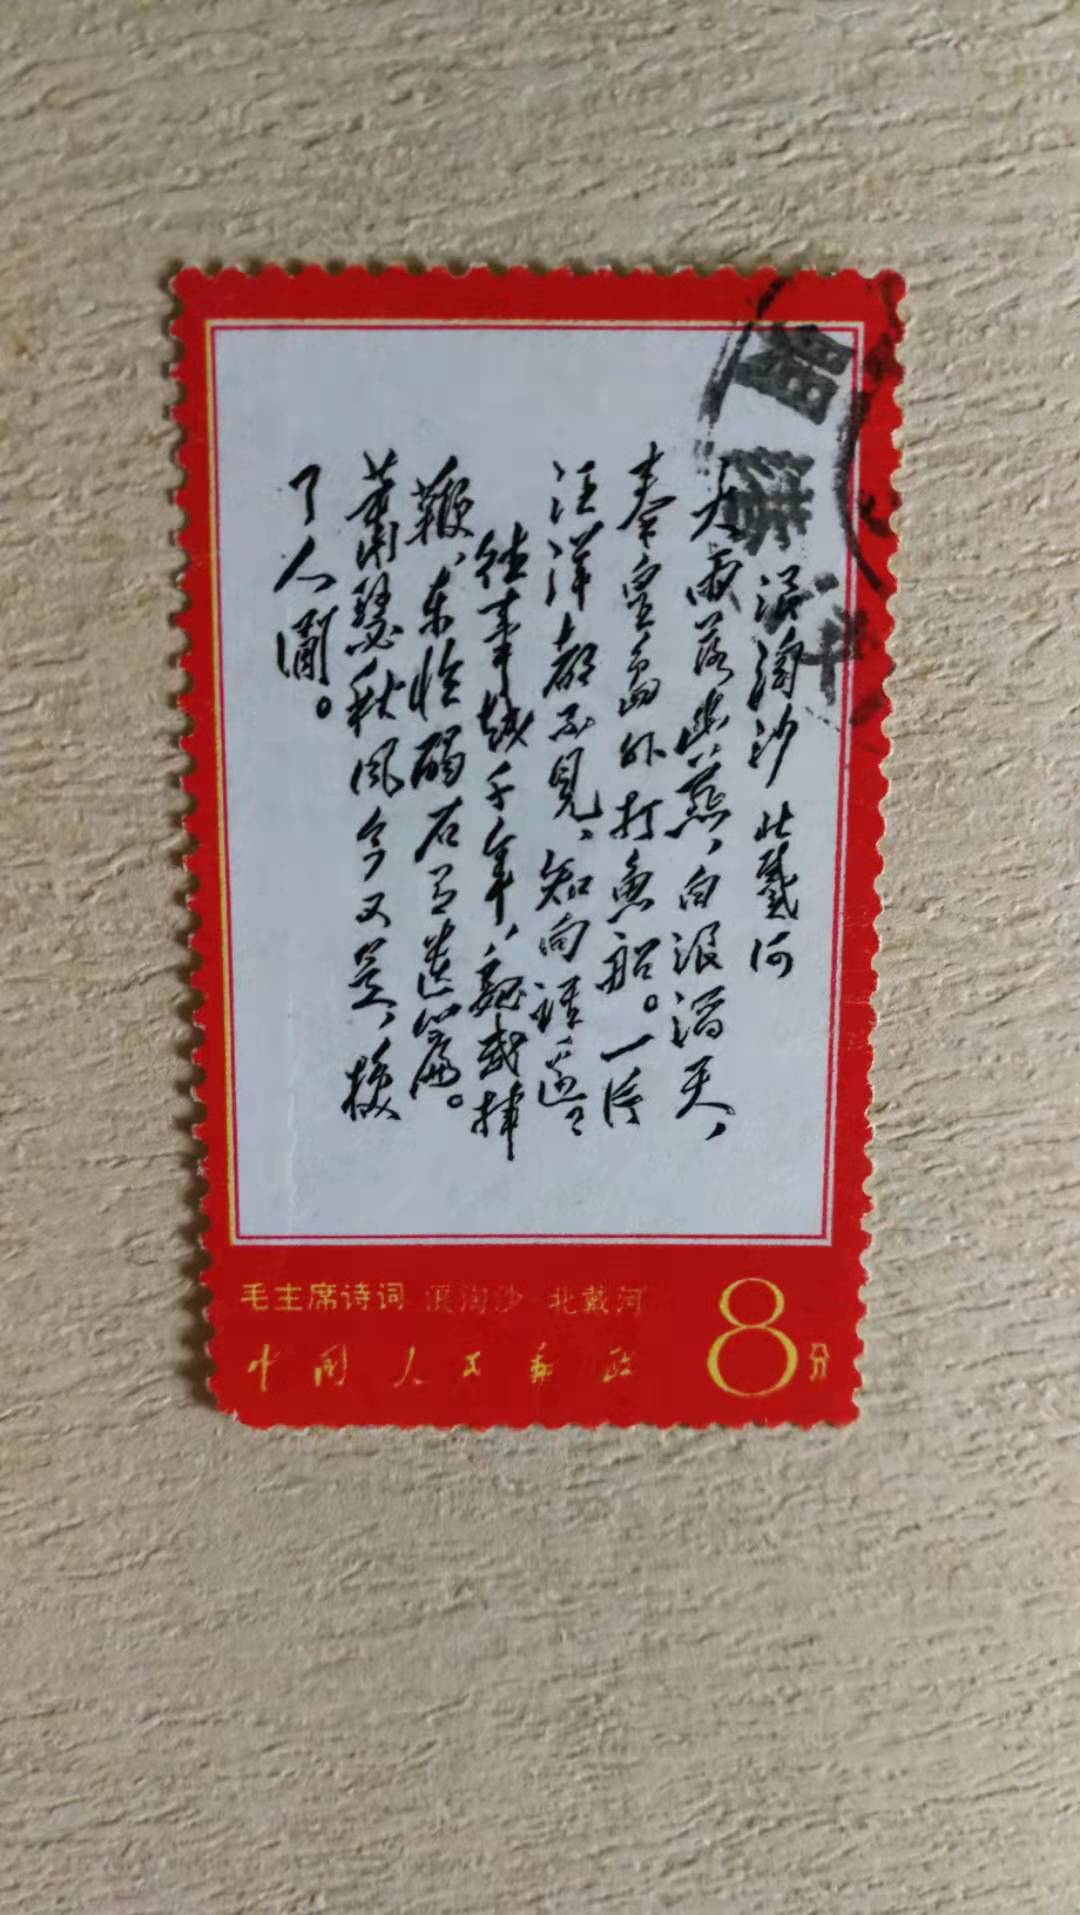 浪淘沙 北戴河
大雨落幽燕、白浪滔天、
秦皇岛外打鱼船。一片
汪洋都不见、知向谁边？
往事越千年、魏武挥
鞭、东临碣石有遗篇。
萧瑟秋风今又是、换
了人间。
毛主席诗词 浪淘沙 北戴河
中国人民邮政
8分